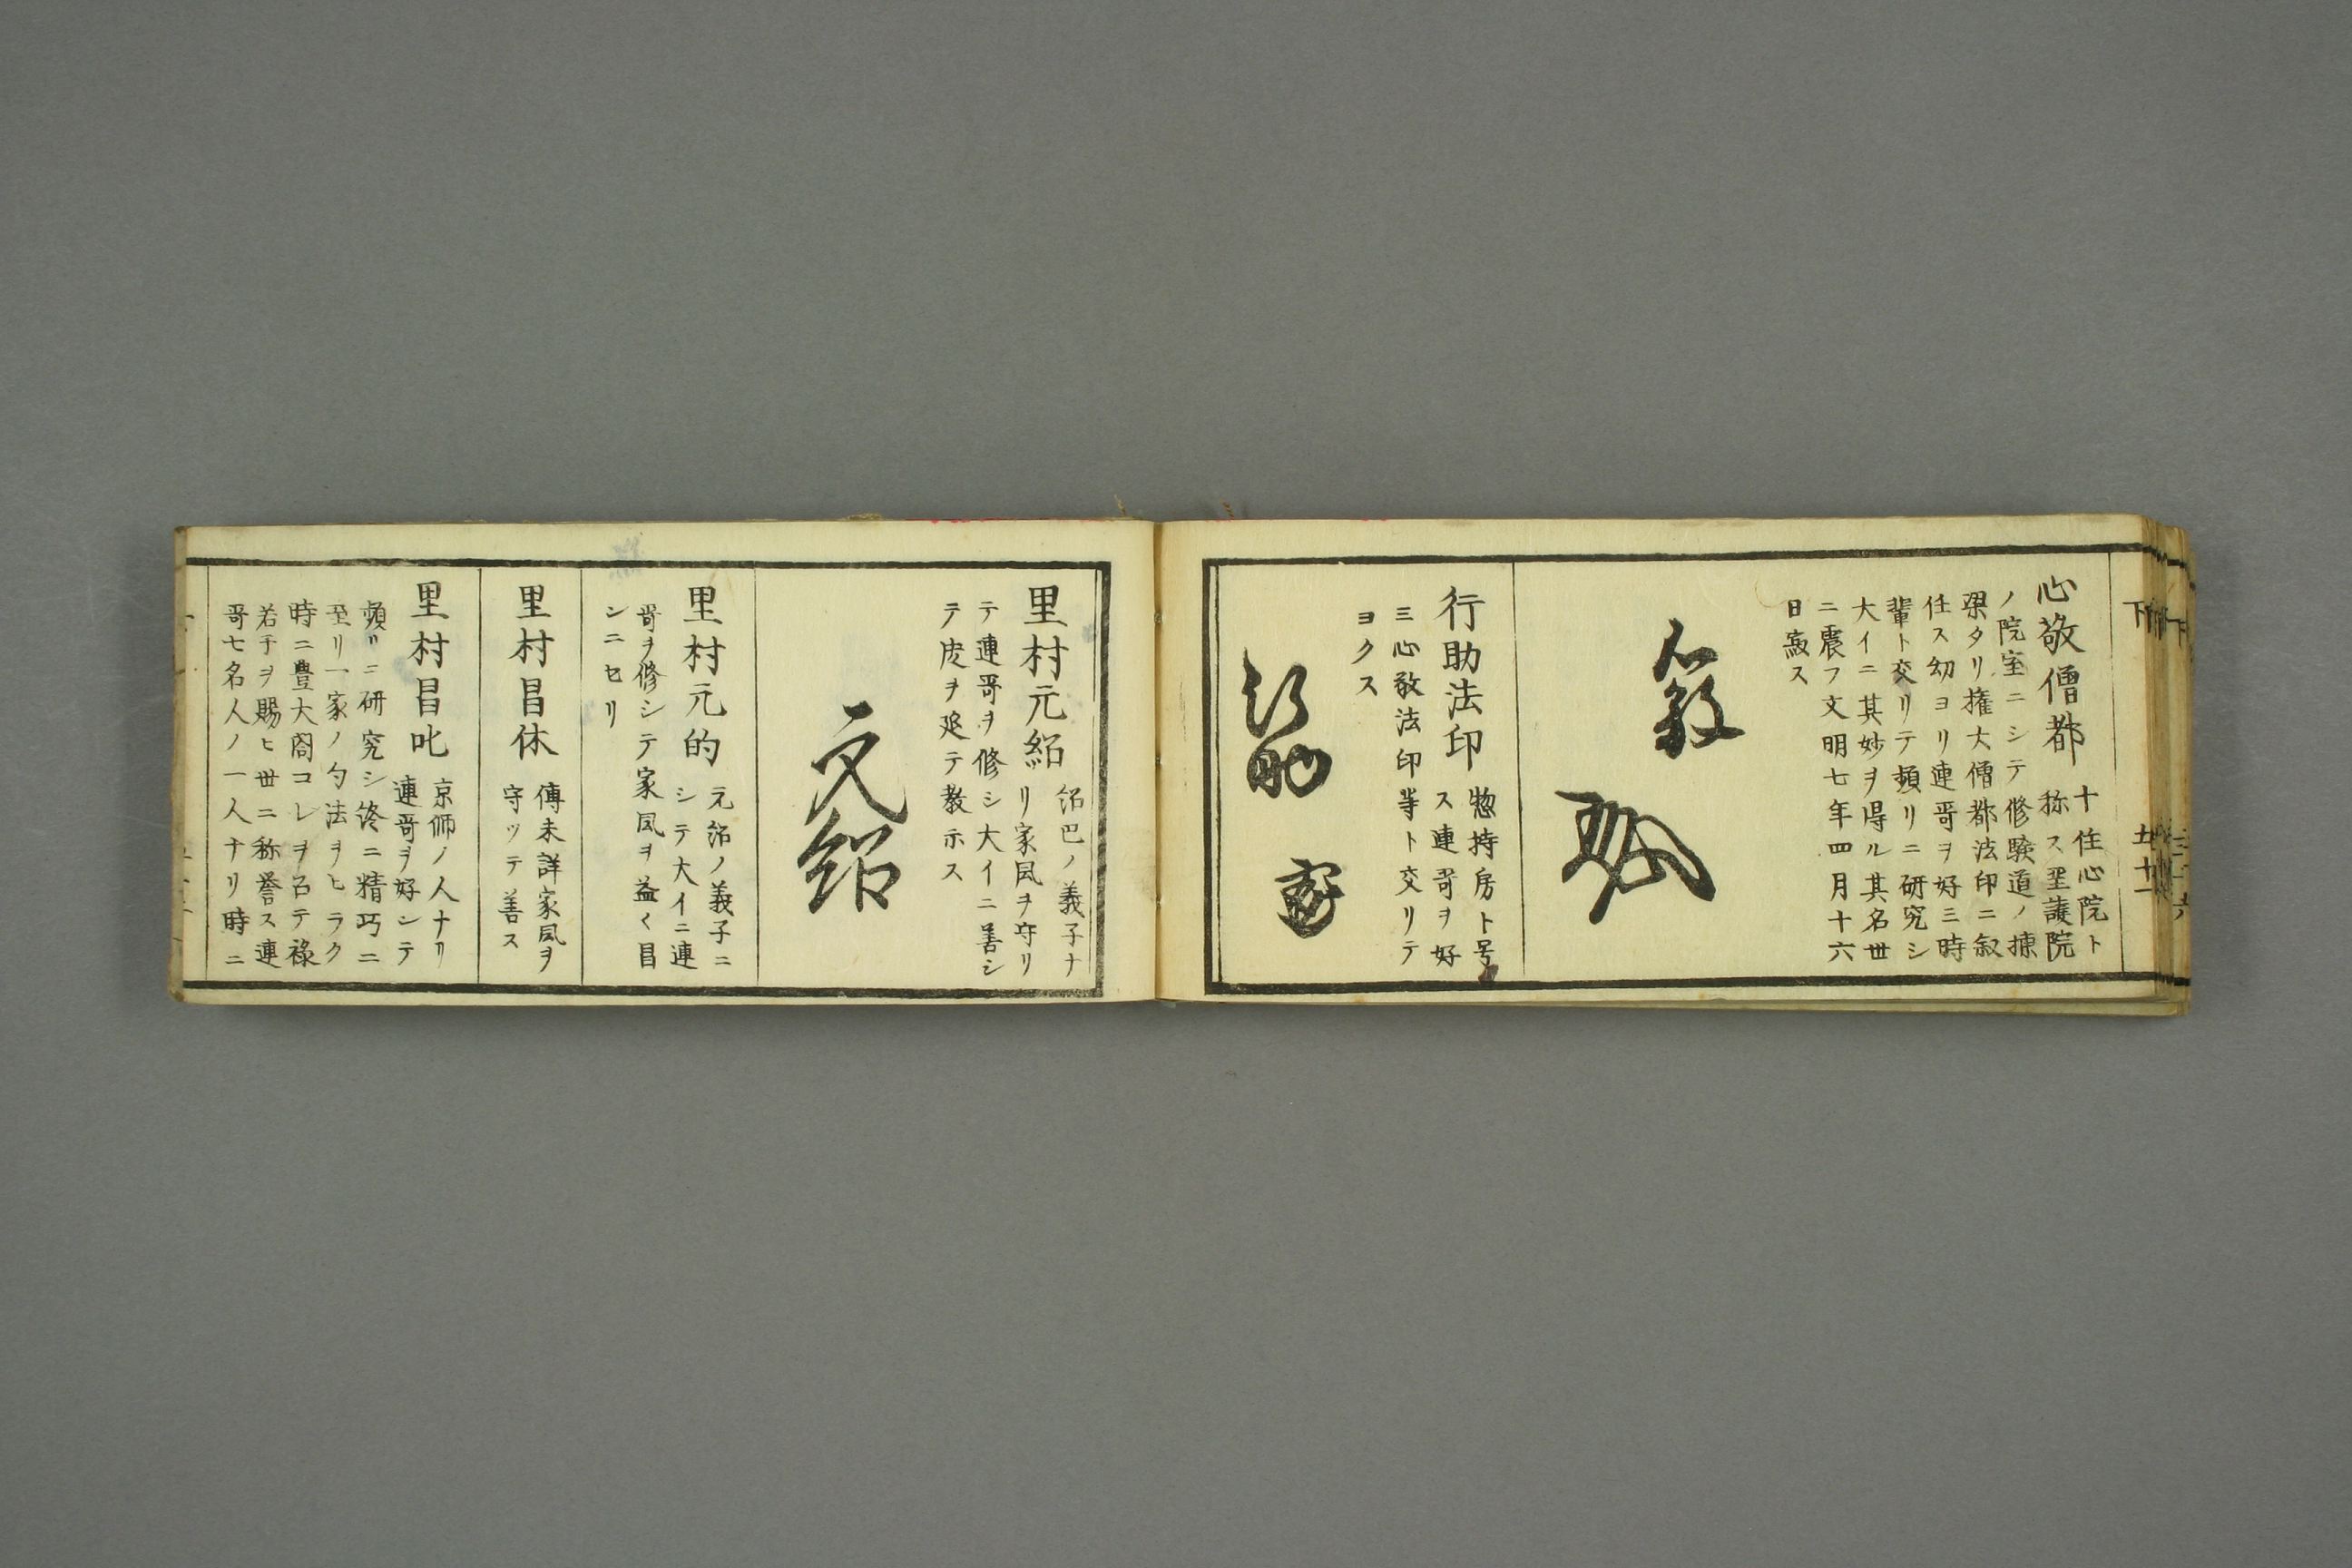 下 五十一
心敬僧都 十住心院ト
称ス聖護院
ノ院室ニシテ修験道ノ棟
梁タリ權大僧都法印ニ叙
任ス幼ヨリ連哥ヲ好三時
輩ト交リテ頻リニ研究シ
大イニ其妙ヲ得ル其名世
ニ震フ文明七年四月十六
日寂ス
心敬
行助法印 惣持房ト号
ス連哥ヲ好
三心敬法印等ト交リテ
ヨクス
行助
里村元紹 紹巴ノ義子ナ
リ家風ヲ守リ
テ連哥ヲ修シ大イニ善シ
テ度ヲ延テ教示ス
元紹
里村元的 元紹ノ義子ニ
シテ大イニ連
哥ヲ修シテ家風ヲ益〱昌
シニセリ
里村昌休 傳未詳家風ヲ
守ッテ善ス
里村昌叱 京師ノ人ナリ
連哥ヲ好シテ
頻リニ研究シ終ニ精巧ニ
至リ一家ノ句法ヲヒラク
時ニ豊大閤コレヲ召テ禄
若干ヲ賜ヒ世ニ称誉ス連
哥七名人ノ一人ナリ時ニ